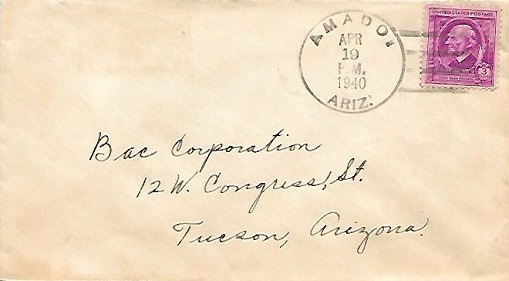 AMADO
APR
19
P.M.
1940
ARIZ.
UNITED STATES POSTAGE
3
Bac Corporation
12 W. Congress, St.
Tucson, Arizona.